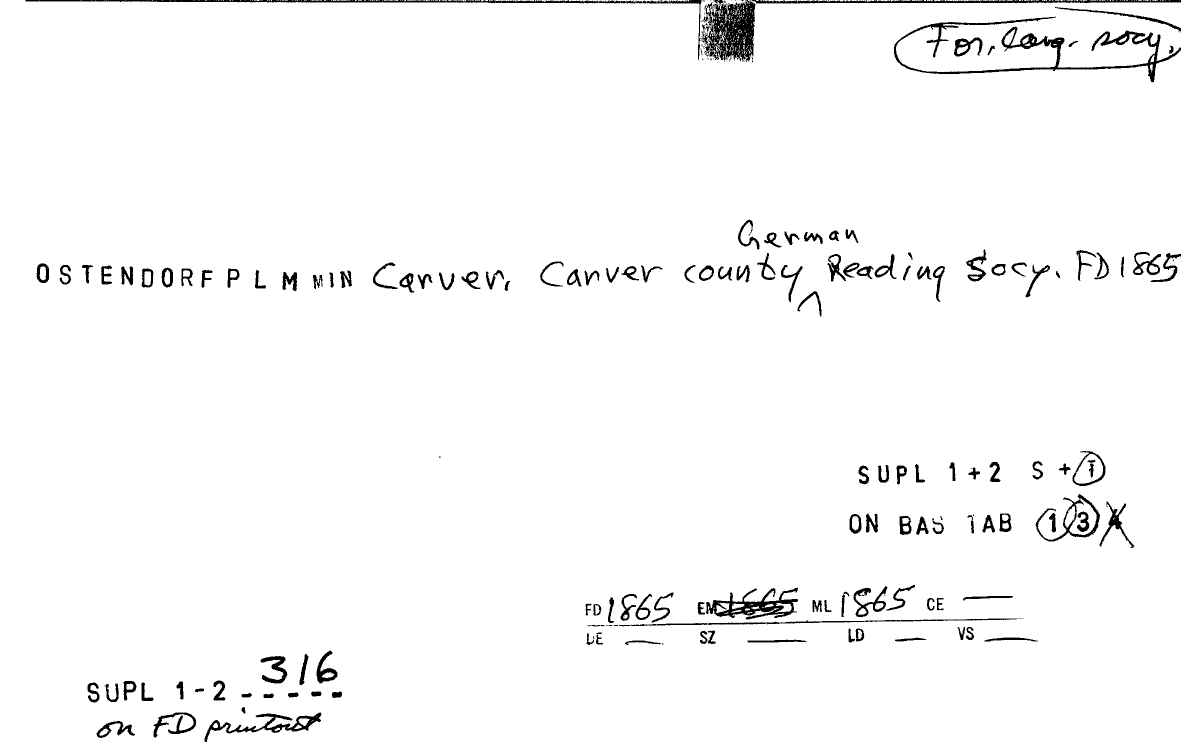 For. lang. socy.
German
OSTENDORF P L M MIN Carver, Carver county ^ Reading Socy. FD 1865
SUPL 1+2 S + T
ON BAS TAB 1 3 4
FD 1865 EM 1865 ML 1865 CE —
DE — SZ — LD — VS —
SUPL 1-2 316
on FD printout